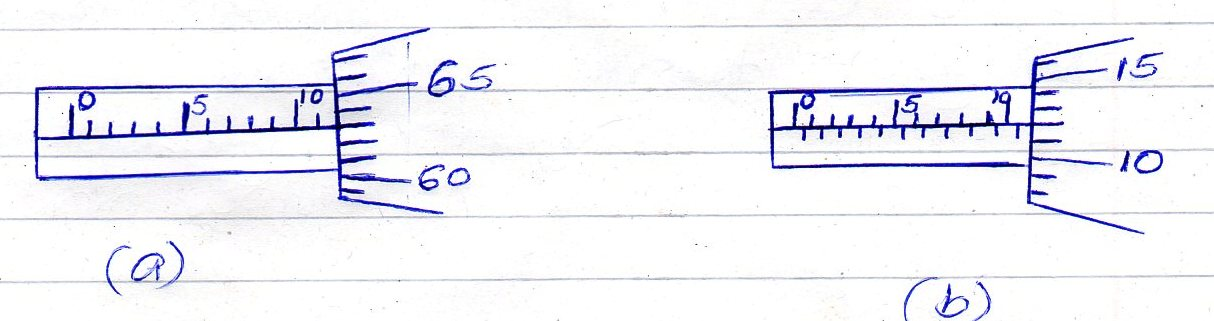 0 5 10 65
60
(a)
0 5 10 15
10
(b)